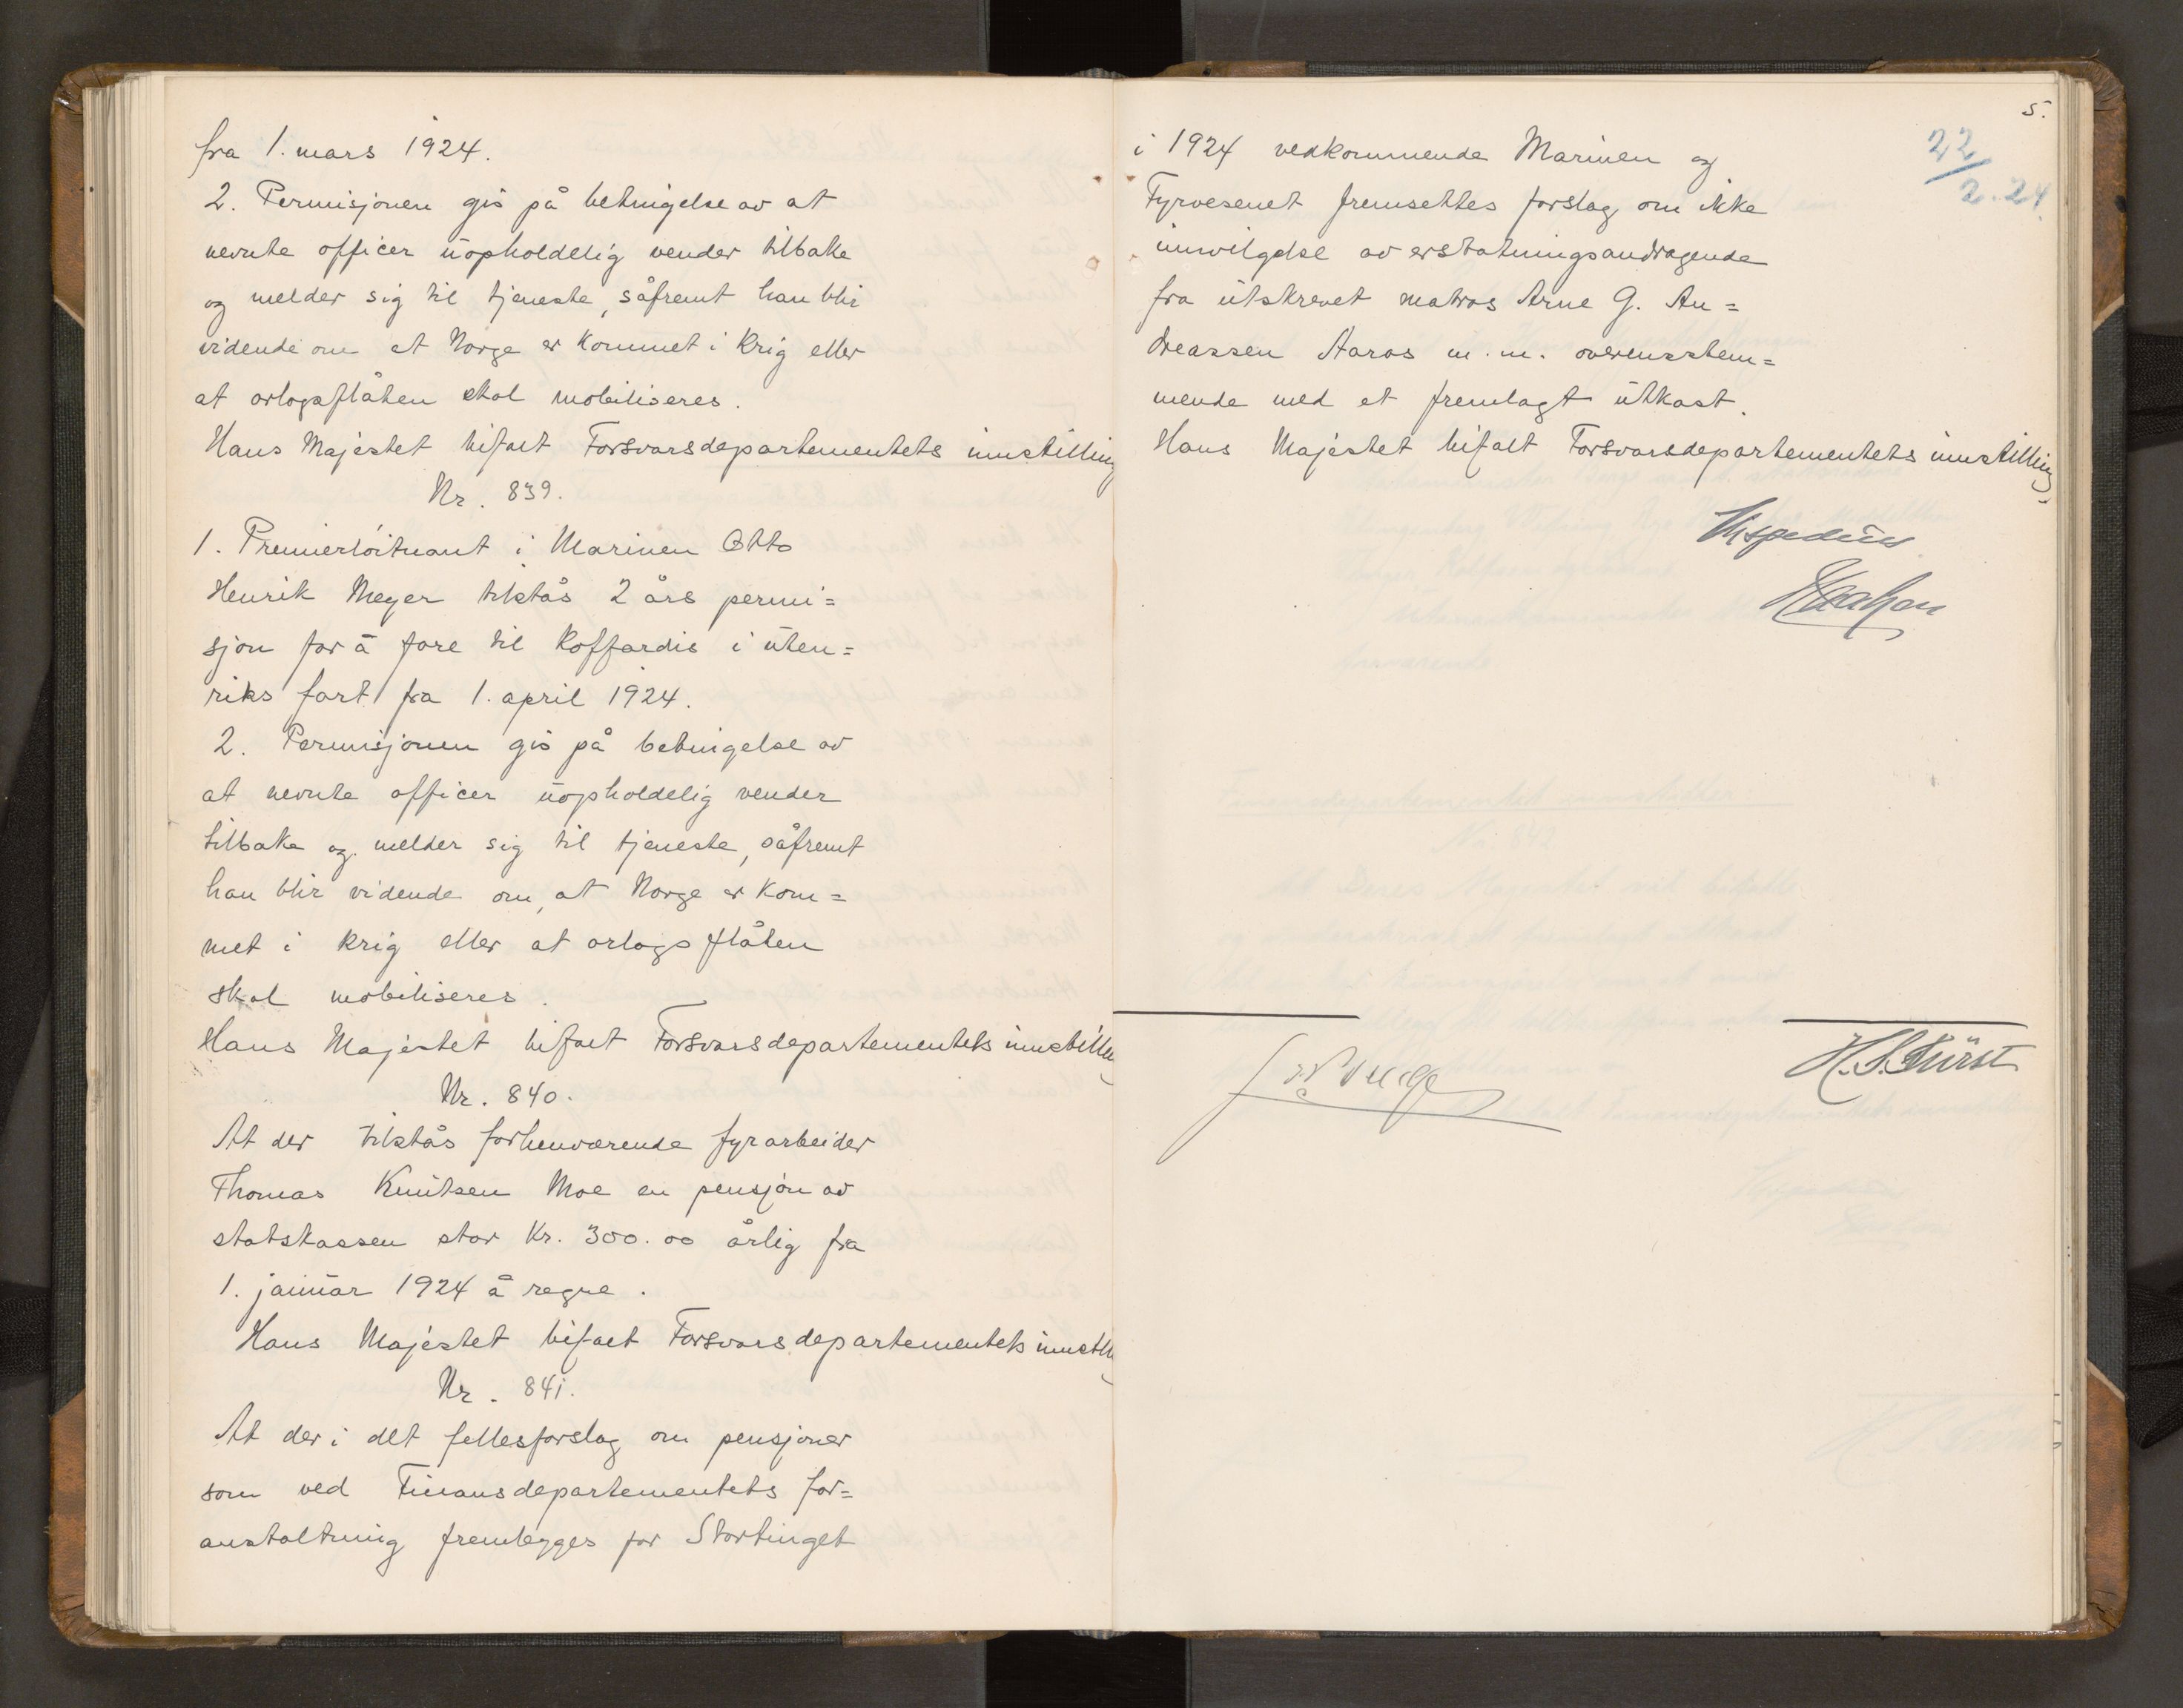 fra 1. mars 1924.
2. Permisjonen gis på betingelse av at
nevnte officer uopholdelig vender tilbake
og melder sig til tjeneste, såfremt han blir
vidende om at Norge er kommet i krig eller
at orlogsflåten skal mobiliseres.
Hans Majestet bifalt Forsvarsdepartementets innstilling
Nr. 839.
1. Premierløitnant i Marinen Otto
Henrik Meyer tilstås 2 års permi=
sjon for å fare til koffardis i uten=
riks fart fra 1. april 1924.
2. Permisjonen gis på betingelse av
at nevnte officer uopholdelig vender
tilbake og melder sig til tjeneste, såfremt
han blir vidende om, at Norge er kom=
met i krig eller at orlogsflåten
skal mobiliseres.
Hans Majestet bifalt Forsvarsdepartementets innstilling
Nr. 840.
At der tilstås forhenværende fyrarbeider
Thomas Knutsen Moe en pensjon av
statskassen stor kr. 300.00 årlig fra
1. januar 1924 å regne.
Hans Majestet bifalt Forsvarsdepartementets innstilling
Nr. 841.
At der i det fellesforslag om pensjoner
som ved Finansdepartementets for=
anstaltning fremlegges for Stortinget
5.
22/2.24.
i 1924 vedkommende Marinen og
Fyrvesenet fremsettes forslag om ikke
innvilgelse av erstatningsandragende
fra utskrevet matros Arne G. An=
dreassen Aaros m.m. overensstem=
mende med et fremlagt utkast.
Hans Majestet bifalt Forsvarsdepartementets innstilling.
H. S. Fürst